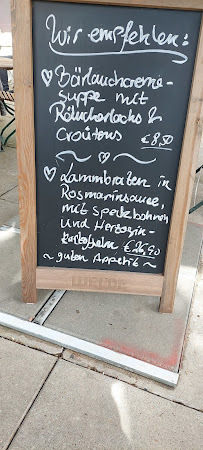 Wir empfehlen:
♡ Bärlauchcreme-
suppe mit
Räucherlachs &
Croûtons
€ 8,50
♡ Lammbraten in
Rosmarinsauce,
mit Speckbohnen
und Herzogin-
kartoffeln € 26,90
~ guten Appetit ~